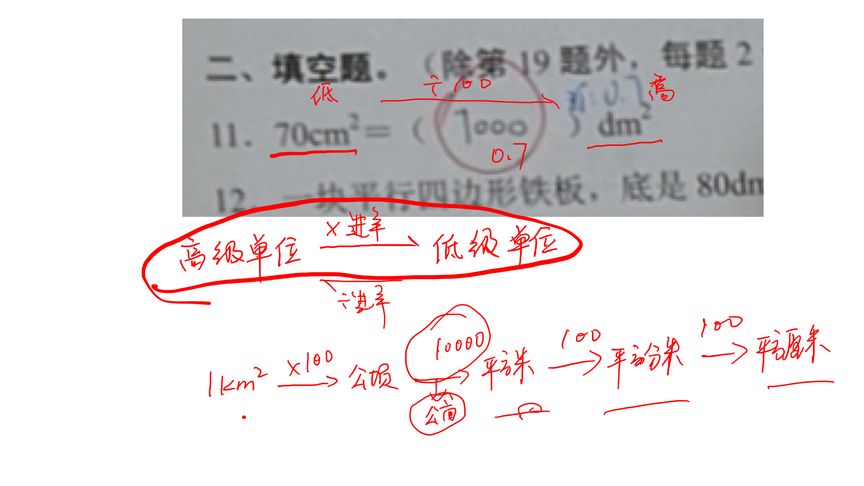 二、填空题。（除第19题外，每题2
低 ÷100 高
11. 70cm²=（ 7000 ）dm²
0.7
12. 一块平行四边形铁板，底是80dm
高级单位 ×进率 低级单位
÷进率
1km² ×100 公顷 10000 平方米 100 平方分米 100 平方厘米
公亩